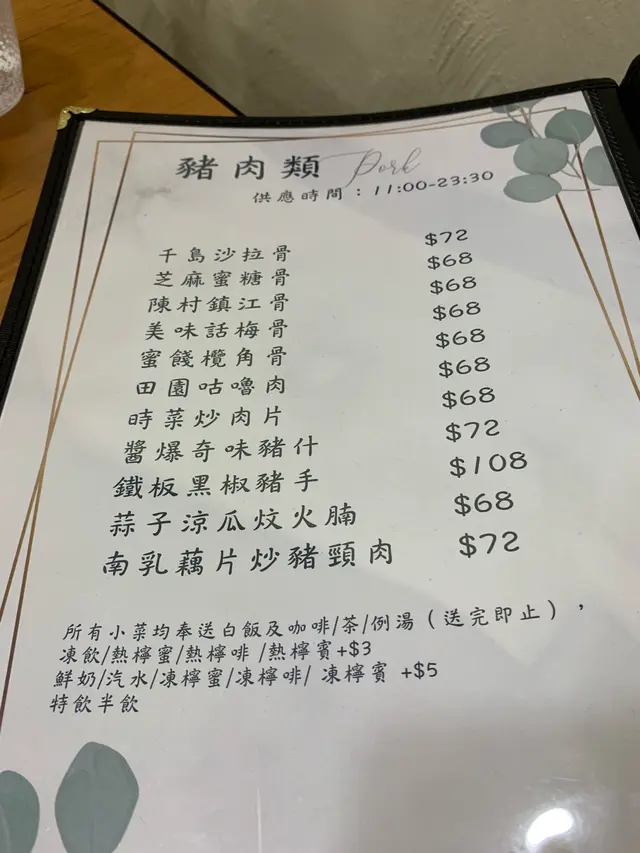 豬肉類 Pork
供應時間：11:00-23:30
千島沙拉骨 $72
芝麻蜜糖骨 $68
陳村鎮江骨 $68
美味話梅骨 $68
蜜餞欖角骨 $68
田園咕嚕肉 $68
時菜炒肉片 $68
醬爆奇味豬什 $72
鐵板黑椒豬手 $108
蒜子涼瓜炆火腩 $68
南乳藕片炒豬頸肉 $72
所有小菜均奉送白飯及咖啡/茶/例湯（送完即止），
凍飲/熱檸蜜/熱檸啡 /熱檸賓+$3
鮮奶/汽水/凍檸蜜/凍檸啡/ 凍檸賓 +$5
特飲半飲